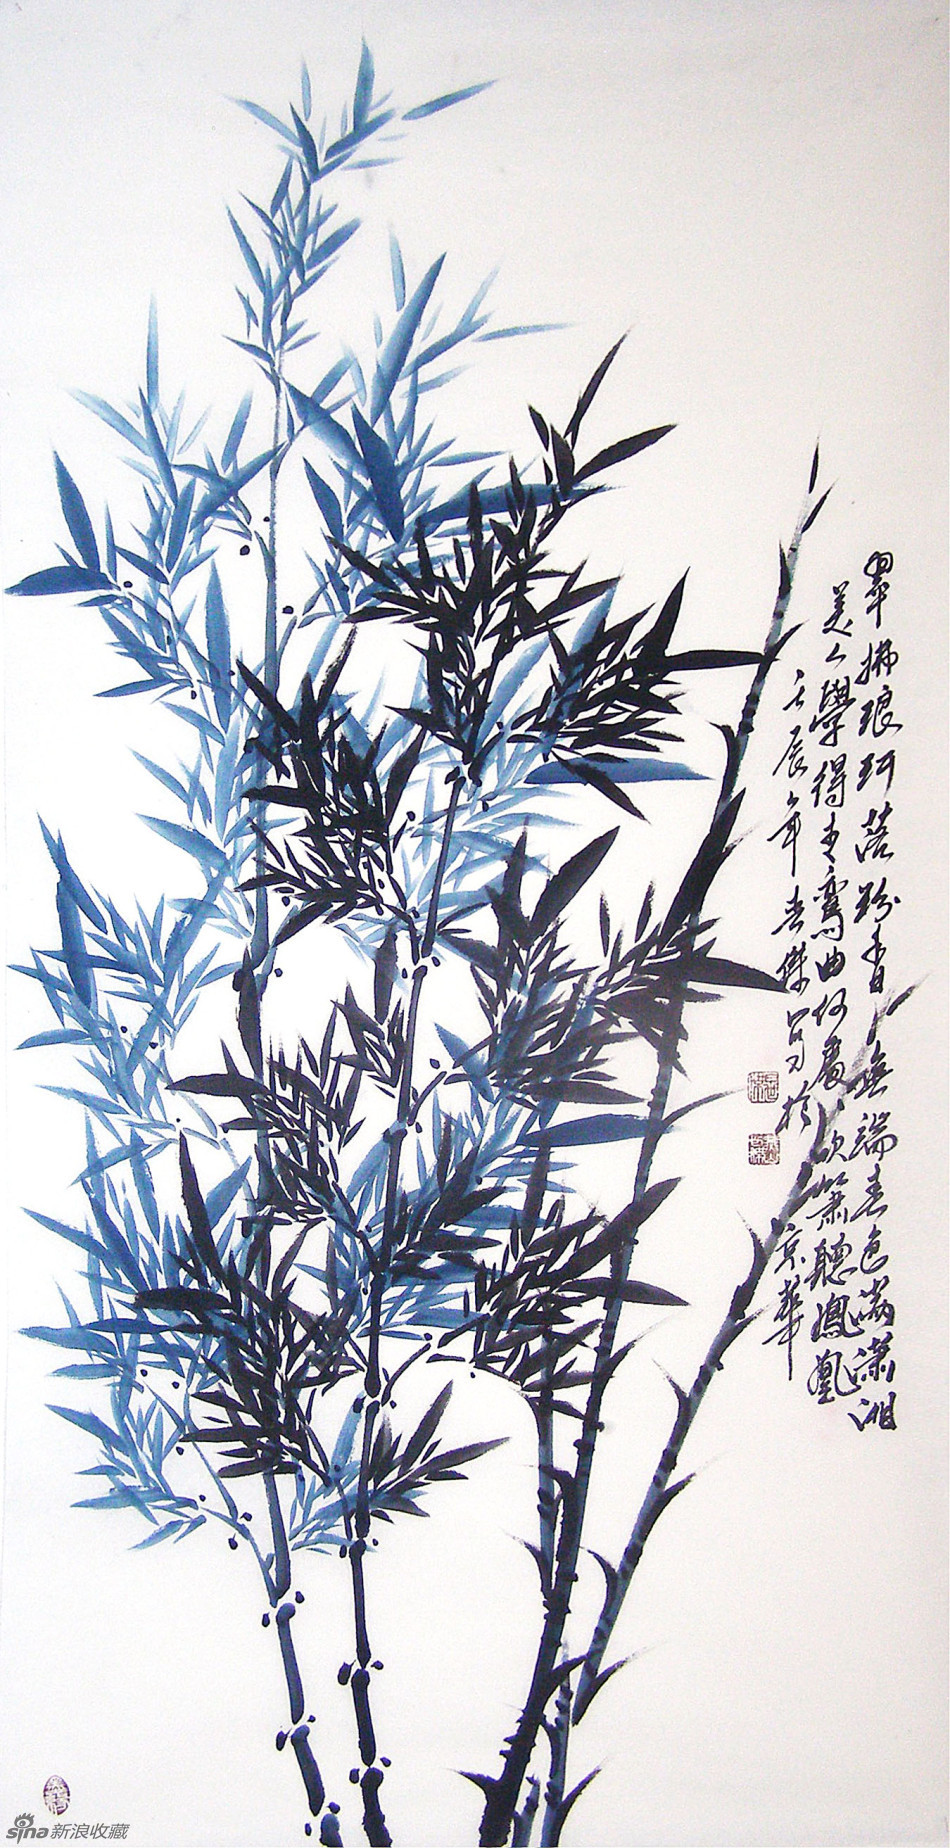 翠拂琅玕落粉香無端春色滿瀟湘
美人學得青鸞曲何處吹簫聽鳳凰
壬辰年春傑寫於京華
sina新浪收藏